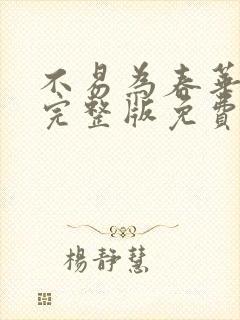 不易為春華
完整版免費
楊靜慧